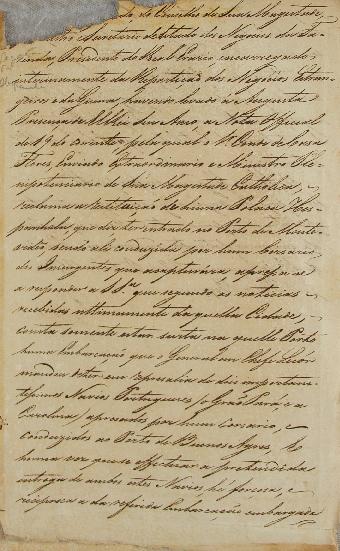 do Conselho de Sua Magestade,
Ministro e Secretario de Estado dos Negocios da Fa-
zenda, Presidente do Real Erario encarregado
interinamente da Repartição dos Negocios Estran-
geiros e da Guerra, havendo levado á Augusta
Presença de El Rei Seu Amo, a Nota Official
de 19 do corrente pela qual o Sr Conde de Casa
Flores, Enviado Extraordinario e Ministro Ple-
nipotenciario de Sua Magestade Catholica,
reclama a restituição de huma Polaca Hes-
panhola, que diz ter entrado no Porto de Monte-
vidéo sendo ali conduzida por hum Corsario
de Insurgentes que a capturára, apressa-se
a responder a S. Sa que segundo as noticias
recebidas ultimamente daquella Cidade,
consta somente estar surta naquelle Porto
huma Embarcação que o General em Chefe Lecór
mandou deter em represalia de dois importan-
tissimos Navios Portuguezes, o Grão Pará, e a
Carolina, apresados por hum Corsario, e
conduzidos ao Porto de Buenos Ayres,
huma vez que se effectuar a pretendida
entrega de ambos estes Navios há forçosa, e
reciproca a da referida Embarcação embargada